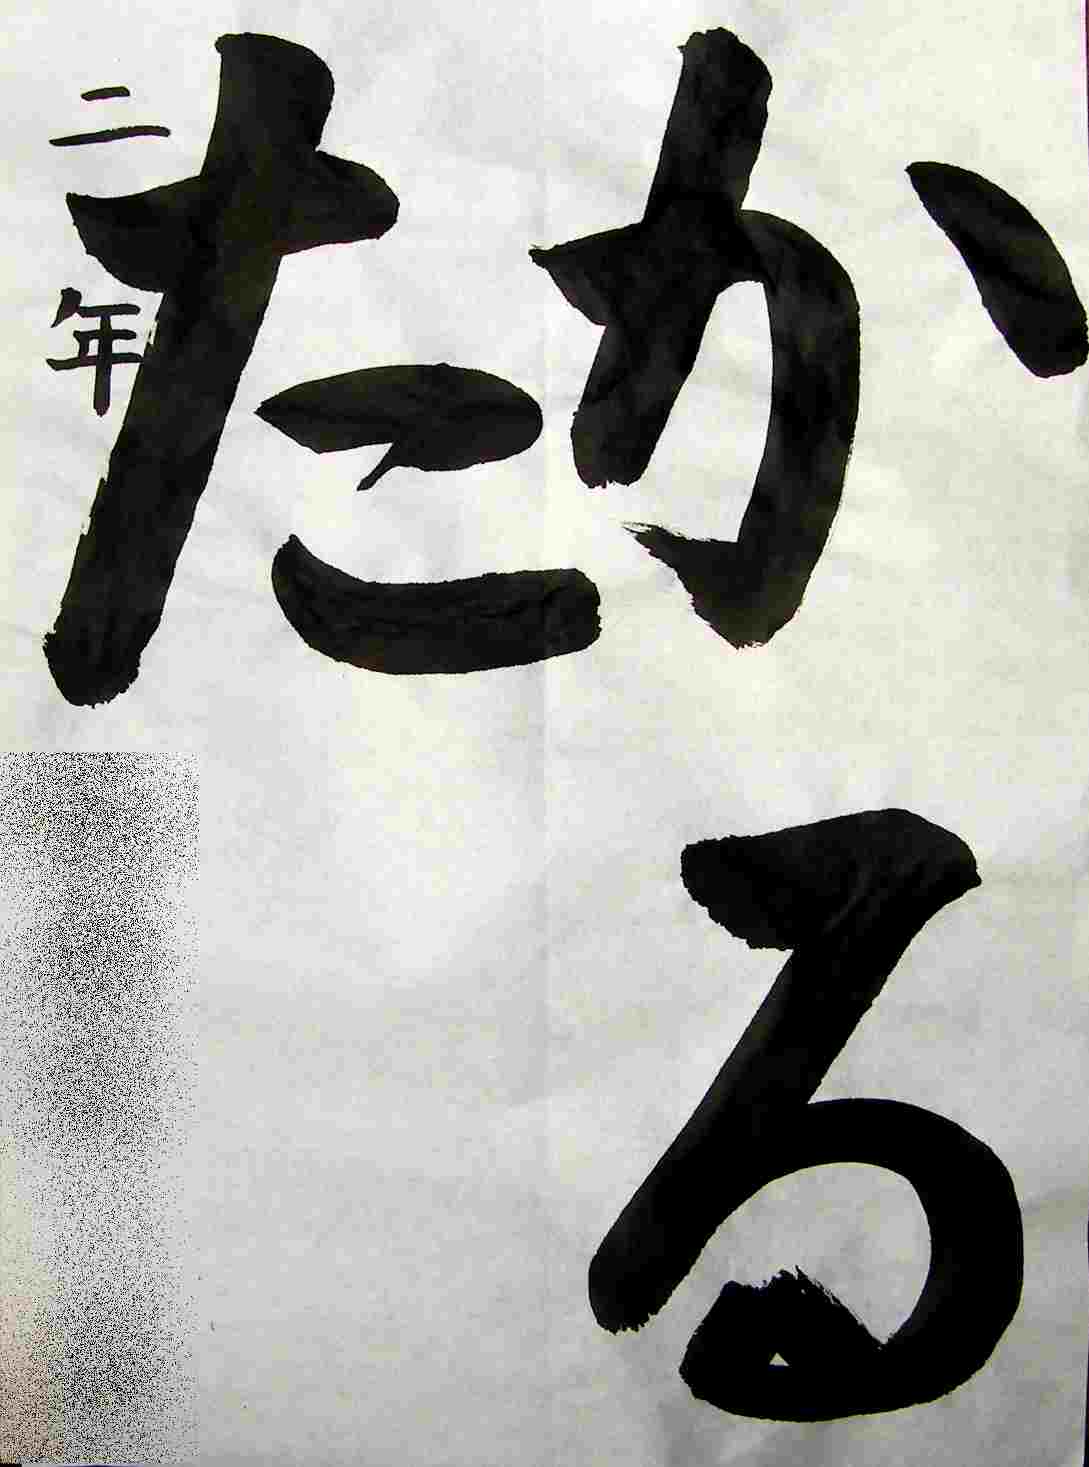 かる
た
二年